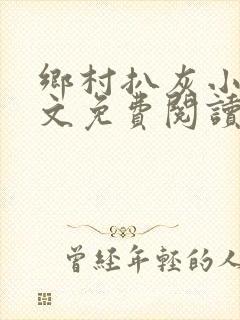 鄉村扒灰小
文免費閱讀
曾經年輕的人